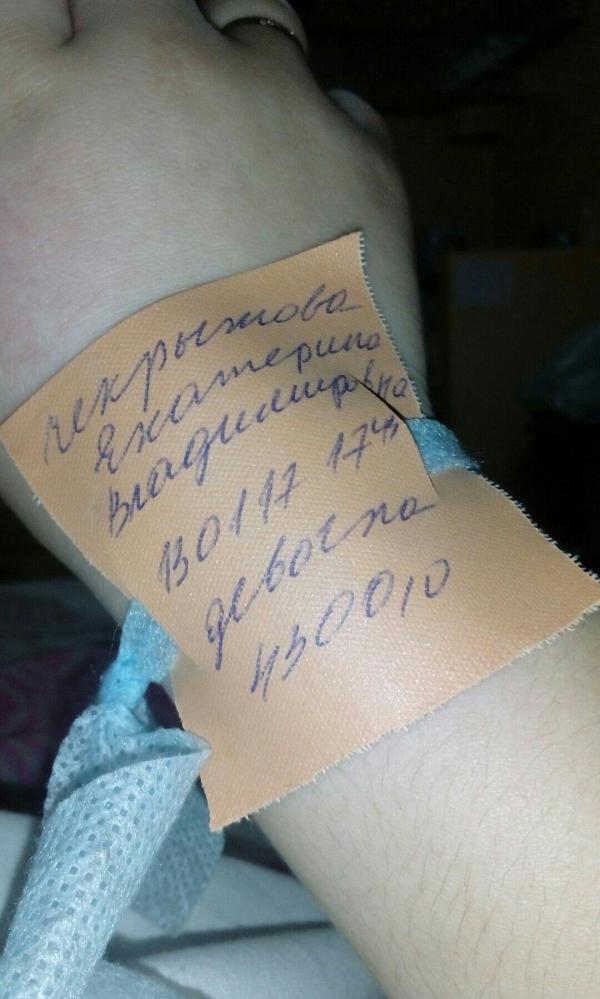 Чекрыжова
Екатерина
Владимировна
130117 17 45
девочка
43001,0